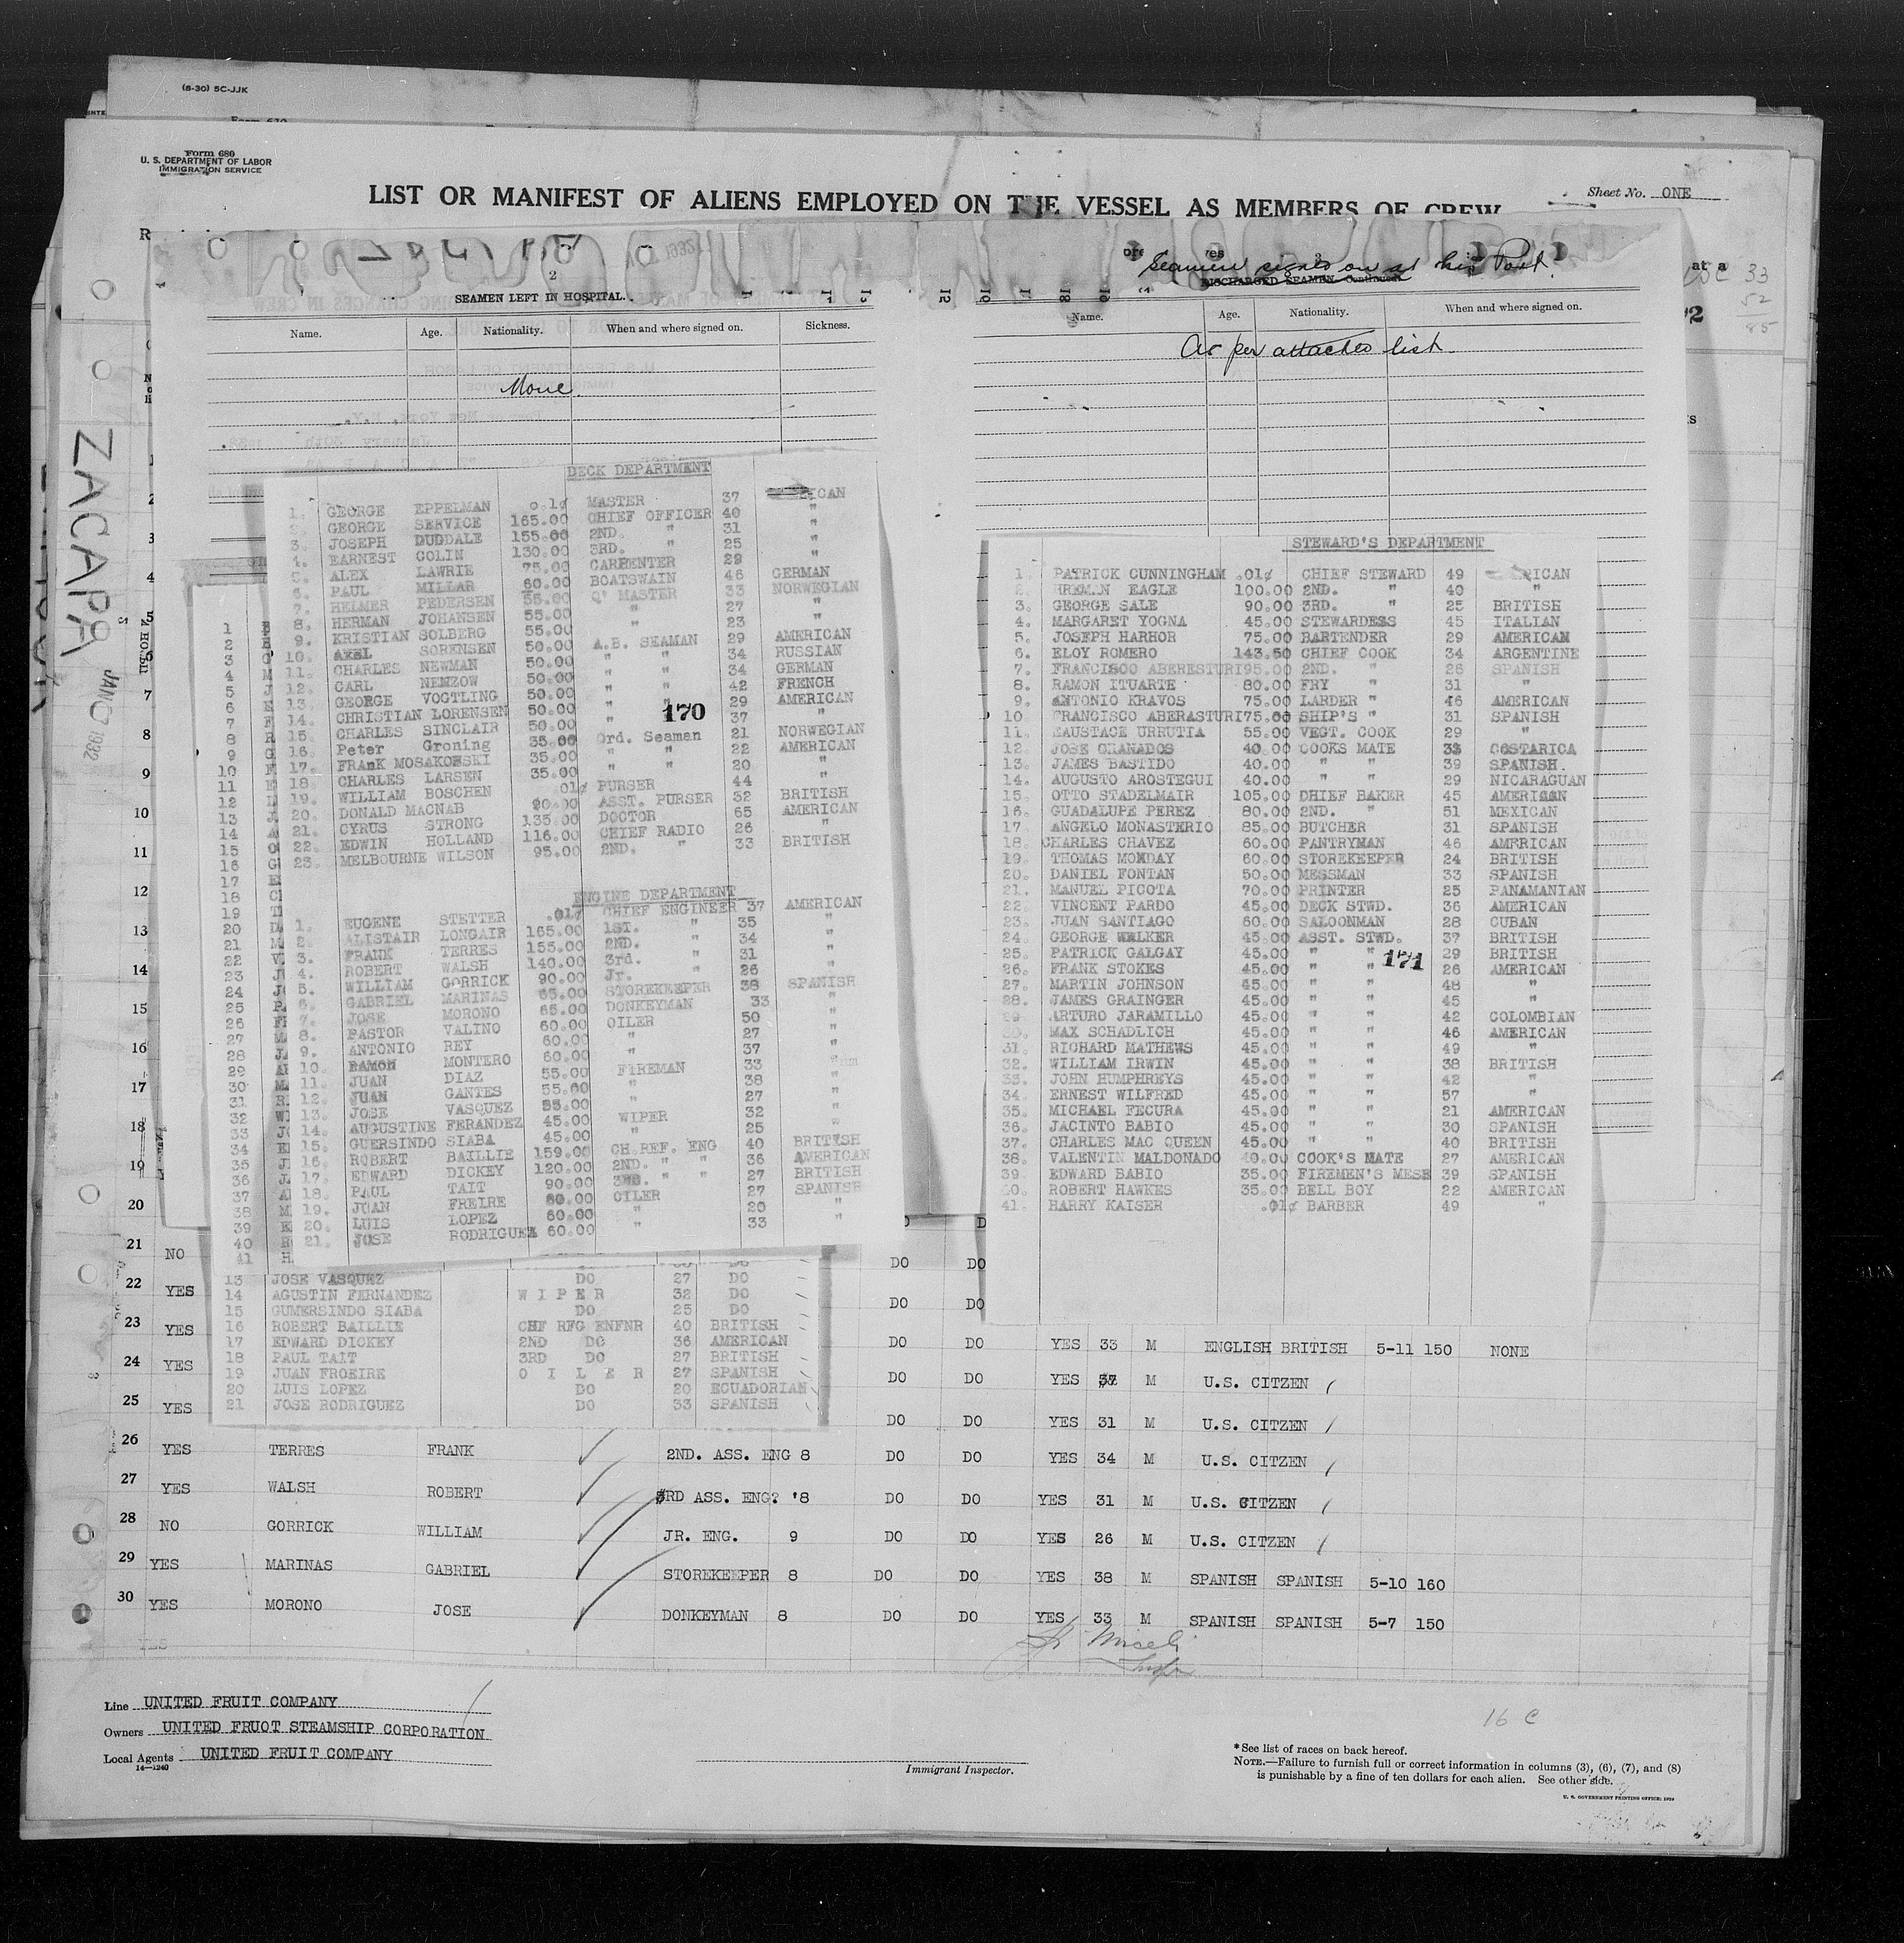 (8-30) 5C-JJK
Form 680
U. S. DEPARTMENT OF LABOR
IMMIGRATION SERVICE
Sheet No. ONE
LIST OR MANIFEST OF ALIENS EMPLOYED ON THE VESSEL AS MEMBERS OF CREW
ZACAPA
JAN 1932
2
SEAMEN LEFT IN HOSPITAL.
Name. Age. Nationality. When and where signed on. Sickness.
None
3
Seamen signed on at this Port.
DISCHARGED SEAMEN—Continued
Name. Age. Nationality. When and where signed on.
As per attached list
at a
33
52
85
DECK DEPARTMENT
1. GEORGE EPPELMAN 0.1¢ MASTER 37 ICAN
2. GEORGE SERVICE 165.00 CHIEF OFFICER 40 "
3. JOSEPH DUDDALE 155.00 2ND. " 31 "
4. EARNEST COLIN 130.00 3RD. " 25 "
5. ALEX LAWRIE 75.00 CARPENTER 29 "
6. PAUL MILLAR 60.00 BOATSWAIN 46 GERMAN
7. HELMER PEDERSEN 55.00 Q' MASTER 33 NORWEGIAN
8. HERMAN JOHANSEN 55.00 " 27 "
9. KRISTIAN SOLBERG 55.00 " 23 "
10. AXEL SORENSEN 50.00 A.B. SEAMAN 29 AMERICAN
11. CHARLES NEWMAN 50.00 " " 34 RUSSIAN
12. CARL NEMZOW 50.00 " " 34 GERMAN
13. GEORGE VOGTLING 50.00 " " 42 FRENCH
14. CHRISTIAN LORENSEN 50.00 " 29 AMERICAN
15. CHARLES SINCLAIR 50.00 " 37 "
170
16. Peter Groning 35.00 Ord. Seaman 21 NORWEGIAN
17. FRANK MOSAKOWSKI 35.00 " " 22 AMERICAN
18. CHARLES LARSEN 35.00 " " 20 "
19. WILLIAM BOSCHEN 01¢ PURSER 44 "
20. DONALD MACNAB 90.00 ASST. PURSER 32 BRITISH
21. CYRUS STRONG 135.00 DOCTOR 65 AMERICAN
22. EDWIN HOLLAND 116.00 CHIEF RADIO 26 "
23. MELBOURNE WILSON 95.00 2ND. " 33 BRITISH
ENGINE DEPARTMENT
1. EUGENE STETTER .01¢ CHIEF ENGINEER 37 AMERICAN
2. ALISTAIR LONGAIR 165.00 1ST. " 35 "
3. FRANK TERRES 155.00 2ND. " 34 "
4. ROBERT WALSH 140.00 3rd. " 31 "
5. WILLIAM GORRICK 90.00 Jr. " 26 "
6. GABRIEL MARINAS 65.00 STOREKEEPER 38 SPANISH
7. JOSE MORONO 65.00 DONKEYMAN 33 "
8. PASTOR VALINO 60.00 OILER 50 "
9. ANTONIO REY 60.00 " 27 "
10. RAMON MONTERO 60.00 " 37 "
11. JUAN DIAZ 55.00 FIREMAN 33 "
12. JUAN GANTES 55.00 " 38 "
13. JOSE VASQUEZ 55.00 " 27 "
14. AUGUSTINE FERANDEZ 45.00 WIPER 32 "
15. GUERSINDO SIABA 45.00 " 25 "
16. ROBERT BAILLIE 159.00 CH.REF. ENG 40 BRITISH
17. EDWARD DICKEY 120.00 2ND. " " 36 AMERICAN
18. PAUL TAIT 90.00 3RD. " " 27 BRITISH
19. JUAN FREIRE 60.00 OILER 27 SPANISH
20. LUIS LOPEZ 60.00 " 20 "
21. JOSE RODRIGUEZ 60.00 " 33 "
STEWARD'S DEPARTMENT
1. PATRICK CUNNINGHAM .01¢ CHIEF STEWARD 49 RICAN
2. HREMAN EAGLE 100.00 2ND. " 40 "
3. GEORGE SALE 90.00 3RD. " 25 BRITISH
4. MARGARET YOGNA 45.00 STEWARDESS 45 ITALIAN
5. JOSEPH HARHOR 75.00 BARTENDER 29 AMERICAN
6. ELOY ROMERO 143.50 CHIEF COOK 34 ARGENTINE
7. FRANCISCO ABERESTURI 95.00 2ND. " 26 SPANISH
8. RAMON ITUARTE 80.00 FRY " 31 "
9. ANTONIO KRAVOS 75.00 LARDER " 46 AMERICAN
10 FRANCISCO ABERASTURI 75.00 SHIP'S " 31 SPANISH
11. EAUSTACE URRUTIA 55.00 VEGT. COOK 29 "
12. JOSE GRANADOS 40.00 COOKS MATE 33 COSTARICA
13. JAMES BASTIDO 40.00 " " 39 SPANISH.
14. AUGUSTO AROSTEGUI 40.00 " " 29 NICARAGUAN
15. OTTO STADELMAIR 105.00 CHIEF BAKER 45 AMERICAN
16. GUADALUPE PEREZ 80.00 2ND. " 51 MEXICAN
17. ANGELO MONASTERIO 85.00 BUTCHER 31 SPANISH
18. CHARLES CHAVEZ 60.00 PANTRYMAN 46 AMERICAN
19. THOMAS MONDAY 60.00 STOREKEEPER 24 BRITISH
20. DANIEL FONTAN 50.00 MESSMAN 33 SPANISH
21. MANUEL PICOTA 70.00 PRINTER 25 PANAMANIAN
22. VINCENT PARDO 45.00 DECK STWD. 36 AMERICAN
23. JUAN SANTIAGO 60.00 SALOONMAN 28 CUBAN
24. GEORGE WALKER 45.00 ASST. STWD. 37 BRITISH
25. PATRICK GALGAY 45.00 " " 29 BRITISH
171
26. FRANK STOKES 45.00 " " 26 AMERICAN
27. MARTIN JOHNSON 45.00 " " 48 "
28. JAMES GRAINGER 45.00 " " 45 "
29. ARTURO JARAMILLO 45.00 " " 42 COLOMBIAN
30. MAX SCHADLICH 45.00 " " 46 AMERICAN
31. RICHARD MATHEWS 45.00 " " 49 "
32. WILLIAM IRWIN 45.00 " " 38 BRITISH
33. JOHN HUMPHREYS 45.00 " " 42 "
34. ERNEST WILFRED 45.00 " " 57 "
35. MICHAEL FECURA 45.00 " " 21 AMERICAN
36. JACINTO BABIO 45.00 " " 30 SPANISH
37. CHARLES MAC QUEEN 45.00 " " 40 BRITISH
38. VALENTIN MALDONADO 40.00 COOK'S MATE 27 AMERICAN
39. EDWARD BABIO 35.00 FIREMEN'S MESS 39 SPANISH
40. ROBERT HAWKES 35.00 BELL BOY 22 AMERICAN
41. HARRY KAISER .01¢ BARBER 49 "
13 JOSE VASQUEZ DO 27 DO
14 AGUSTIN FERNANDEZ WIPER 32 DO
15 GUMERSINDO SIABA DO 25 DO
16 ROBERT BAILLIE CHF RFG ENFNR 40 BRITISH
17 EDWARD DICKEY 2ND DO 36 AMERICAN
18 PAUL TAIT 3RD DO 27 BRITISH
19 JUAN FROEIRE OILER 27 SPANISH
20 LUIS LOPEZ DO 20 ECUADORIAN
21 JOSE RODRIGUEZ DO 33 SPANISH
21 NO DO DO
22 YES DO DO
23 YES DO DO YES 33 M ENGLISH BRITISH 5-11 150 NONE
24 YES DO DO YES 37 M U.S. CITZEN
25 YES DO DO YES 31 M U.S. CITZEN
26 YES TERRES FRANK 2ND. ASS. ENG 8 DO DO YES 34 M U.S. CITZEN
27 YES WALSH ROBERT 3RD ASS. ENG? '8 DO DO YES 31 M U.S. CITZEN
28 NO GORRICK WILLIAM JR. ENG. 9 DO DO YES 26 M U.S. CITZEN
29 YES MARINAS GABRIEL STOREKEEPER 8 DO DO YES 38 M SPANISH SPANISH 5-10 160
30 YES MORONO JOSE DONKEYMAN 8 DO DO YES 33 M SPANISH SPANISH 5-7 150
YES
Line UNITED FRUIT COMPANY
Owners UNITED FRUOT STEAMSHIP CORPORATION
Local Agents UNITED FRUIT COMPANY
14—1240
Immigrant Inspector.
16 C
*See list of races on back hereof.
NOTE.—Failure to furnish full or correct information in columns (3), (6), (7), and (8)
is punishable by a fine of ten dollars for each alien. See other side.
U. S. GOVERNMENT PRINTING OFFICE: 1929